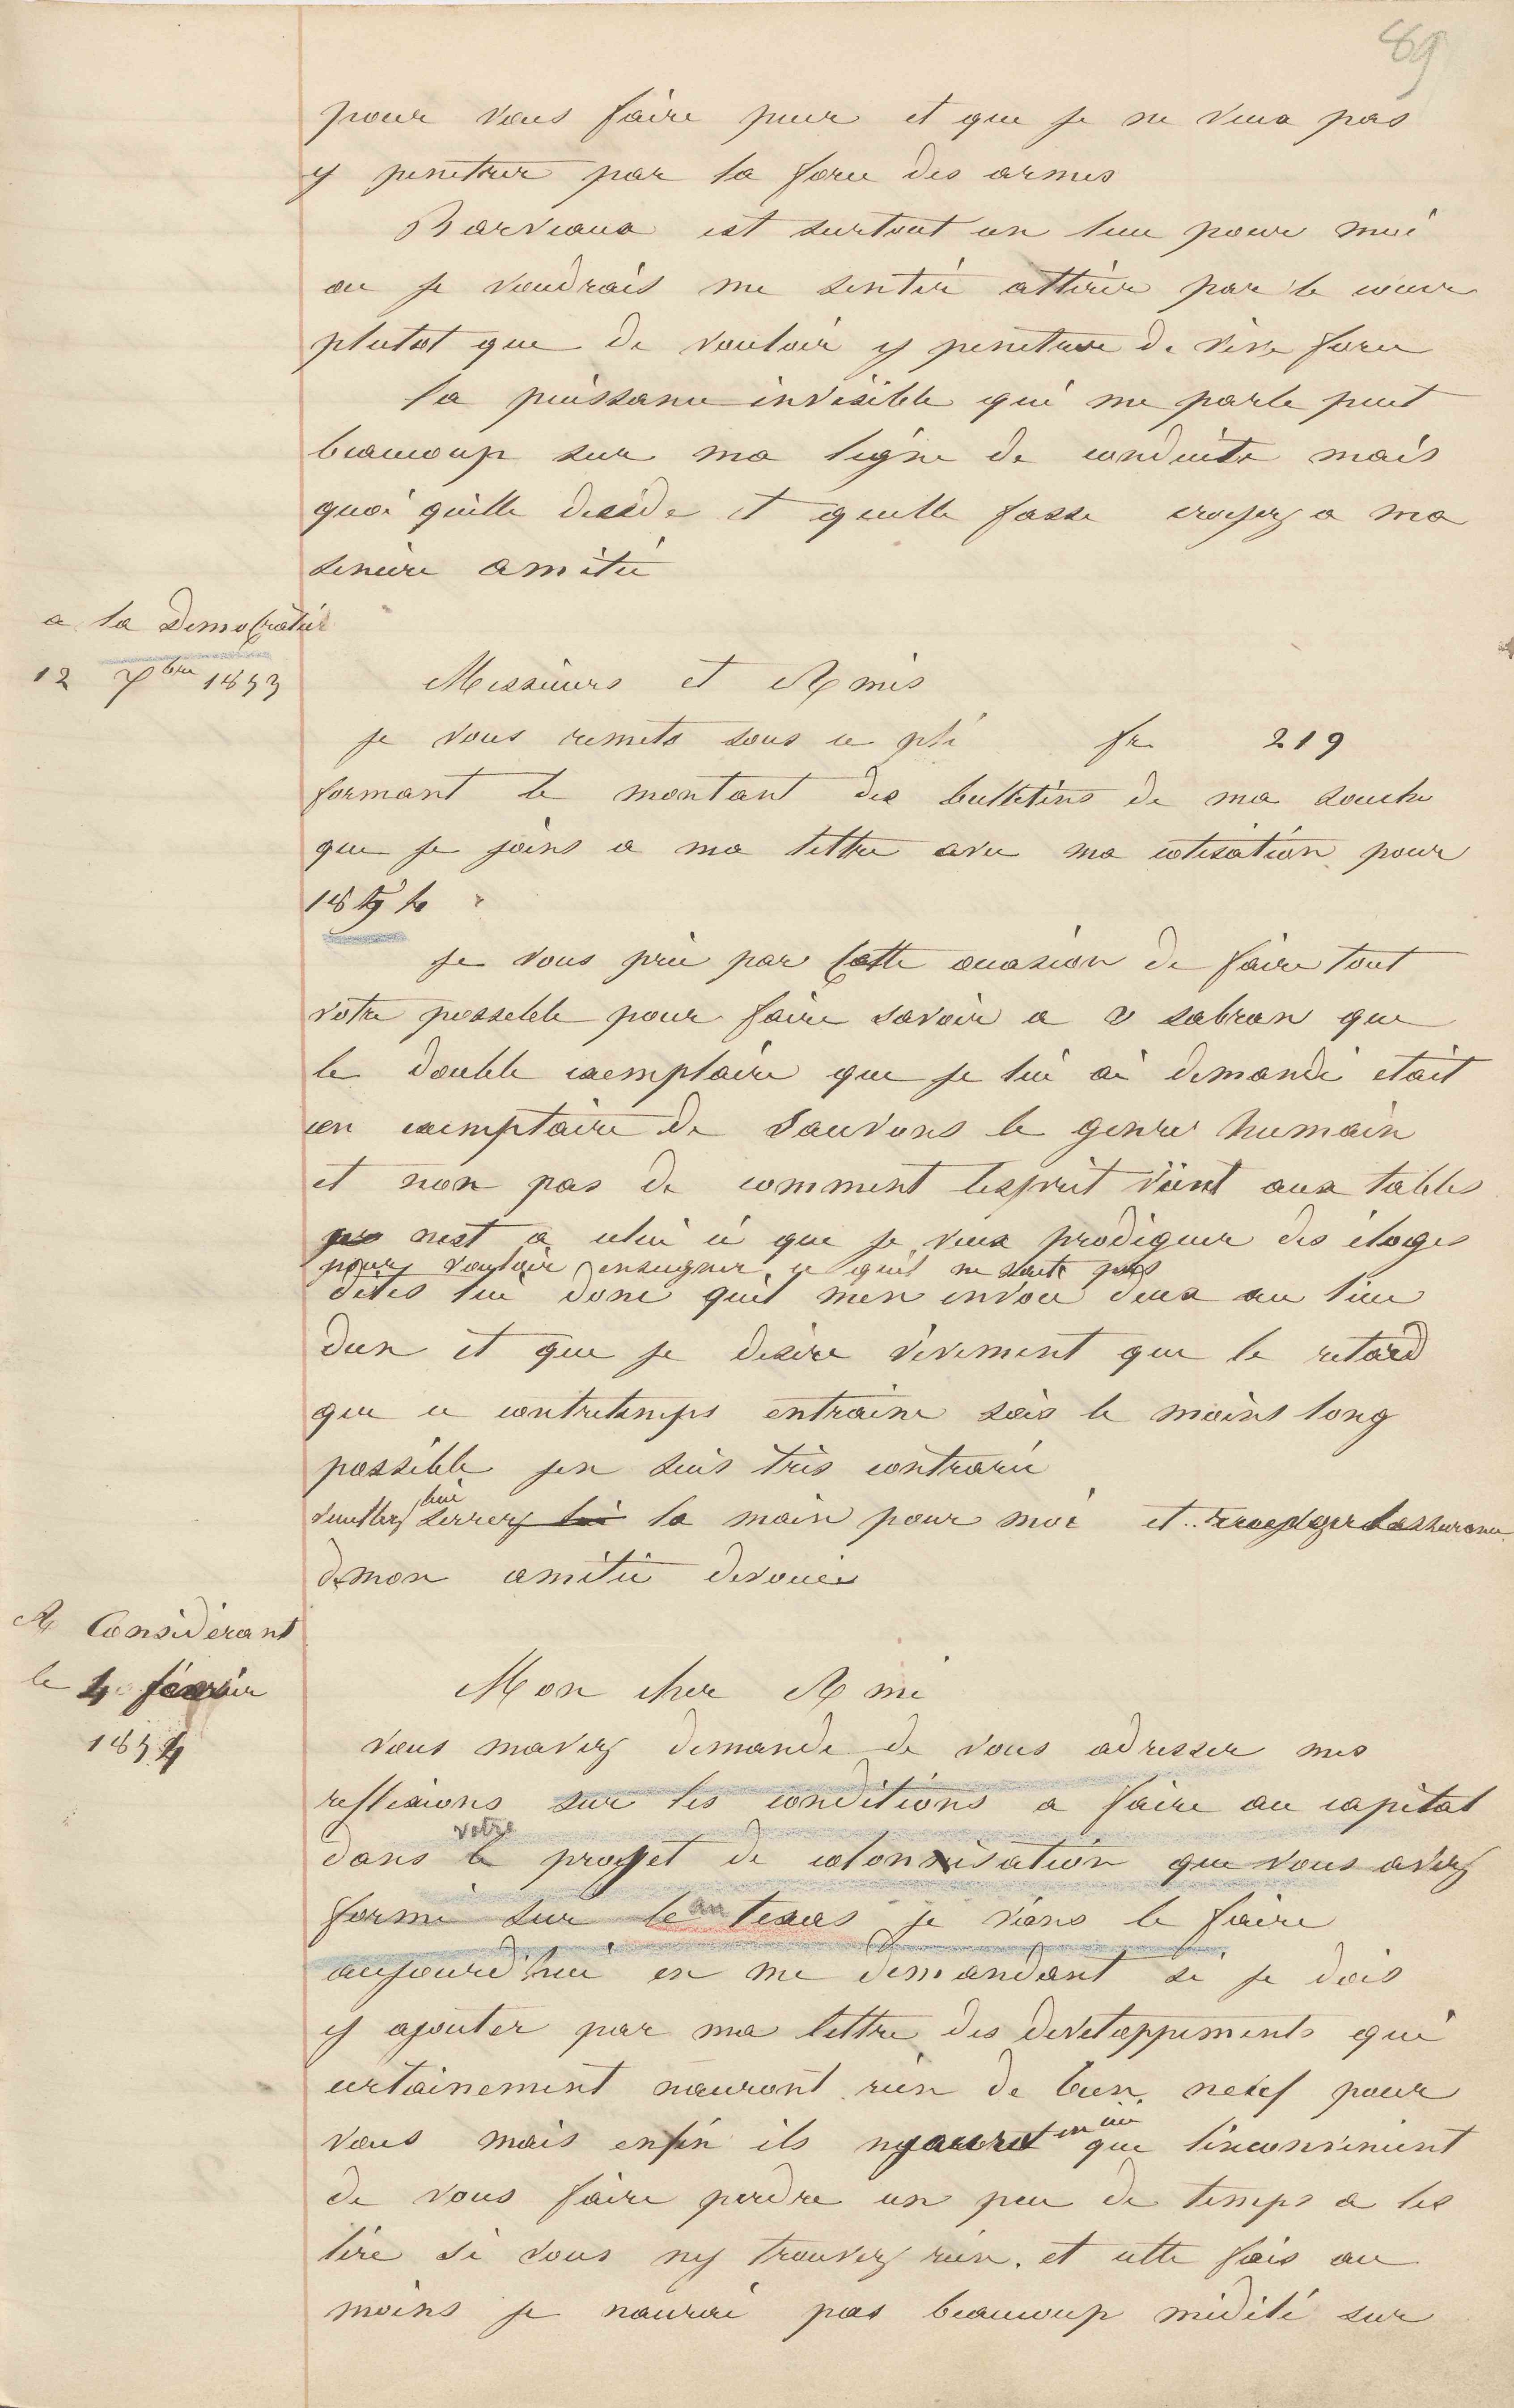 89
pour vous faire peur et que je ne veux pas
y penetrer par la force des armes
Barveaux est surtout un lieu pour moi
ou je voudrais me sentir attirer par le coeur
plutot que de vouloir y penetrer de vive force
la puissance invisible qui me parle peut
beaucoup sur ma ligne de conduite mais
quoi quelle decide et quelle fasse croyez a ma
sincere amitié
a la Democratie
12 7bre 1853
Messieurs et Amis
je vous remets sous ce pli fr 219
formant le montant des bulletins de ma souche
que je joins a ma lettre avec ma cotisation pour
1854
je vous prie par cette occasion de faire tout
votre possible pour faire savoir a sabran que
le double exemplaire que je lui ai demandé etait
un exemplaire de Sauvons le genre humain
et non pas de comment lesprit vient aux tables
nest a celui ci que je veux prodiguer des éloges
pour vouloir enseigner ce quil ne sait pas
dites lui donc quil men envoie deux au lieu
dun et que je desire vivement que le retard
que ce contretemps entraine sois le moins long
possible jen suis très contrarié
veuillez lui serrer lui la main pour moi et lassurance
de mon amitié devouée
A Considerant
le 4 février
1854
Mon cher Ami
vous mavez demandé de vous adresser mes
reflexions sur les conditions a faire au capital
votre
dans le projet de colonisation que vous avez
formé sur le au texas je viens le faire
aujourd'hui en me demandant si je dois
y ajouter par ma lettre des developpements qui
certainement nauront rien de bien neuf pour
vous mais enfin ils que linconvenient
de vous faire perdre un peu de temps a les
lire si vous ny trouvez rien. et cette fois au
moins je naurai pas beaucoup médité sur